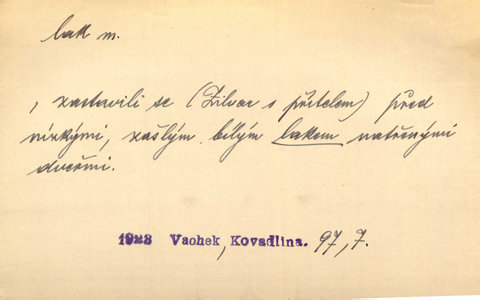 lak m.
, zastavili se (Zilvar s přítelem) před
nízkými, zašlým bílým lakem natřenými
dveřmi.
1923 Vachek, Kovadlina. 97, 7.